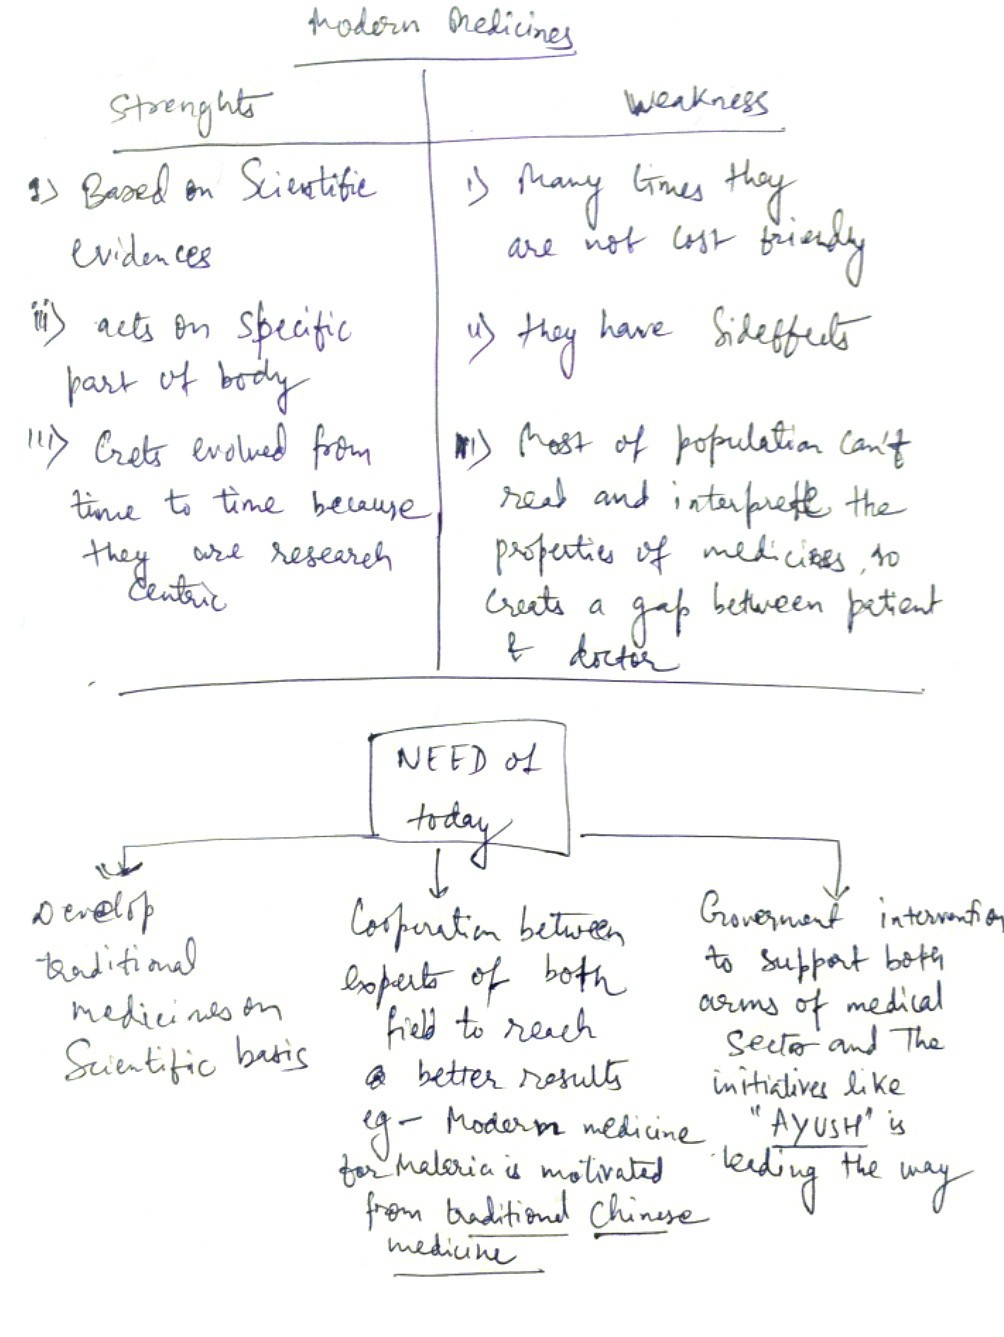 Modern Medicines
Strenghts
Weakness
1) Based on Scientific
evidences
ii) acts on specific
part of body
iii) Crets evolved from
time to time because
they are research
Centric
i) Many times they
are not cost friendly
ii) they have Sideffects
iii) Most of population can't
read and interprete the
properties of medicines, so
Creats a gap between patient
& doctor
NEED of
today
Develop
traditional
medicines on
Scientific basis
Cooperation between
experts of both
field to reach
a better results
eg - Modern medicine
for Malaria is motivated
from traditional Chinese
medicine
Goverment intervention
to support both
arms of medical
Sector and The
initiatives like
"AYUSH" is
leading the way